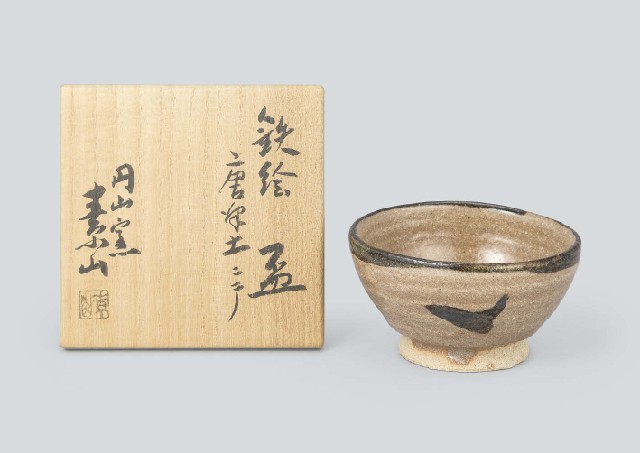 鉄絵 盃
二唐津土ニテ
円山窯
素山